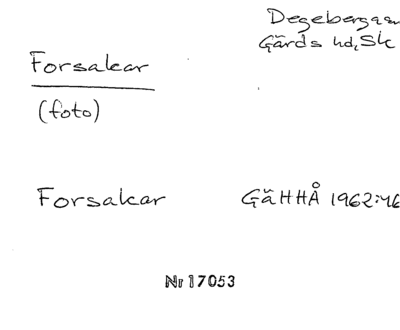 Degeberga sn
Gärds hd, Sk
Forsakar
(foto)
Forsakar GäHHÅ 1962:46
Nr 17053